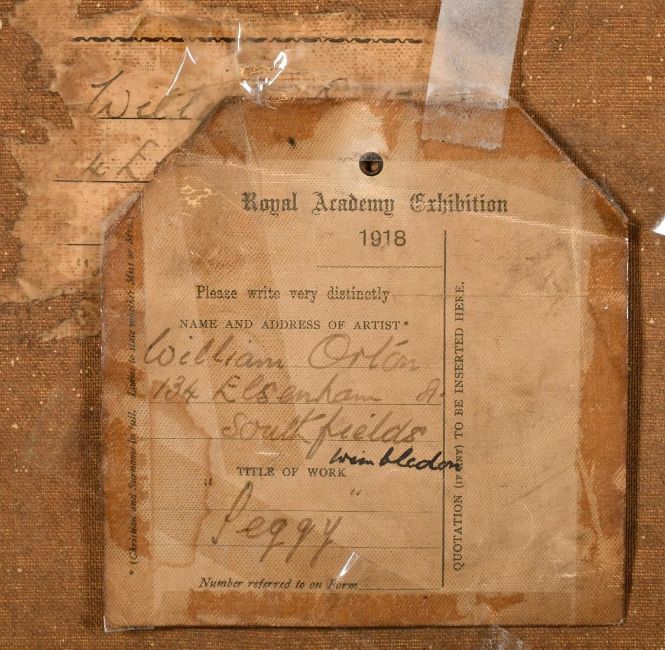 Will
4 E
Royal Academy Exhibition
1918
Please write very distinctly
NAME AND ADDRESS OF ARTIST*
William Orton
134 Elsenham St
Southfields
Wimbledon
TITLE OF WORK
"Peggy"
Number referred to on Form
QUOTATION (IF ANY) TO BE INSERTED HERE.
* (Christian and Surname in full. Ladies to state whether Miss or Mrs.